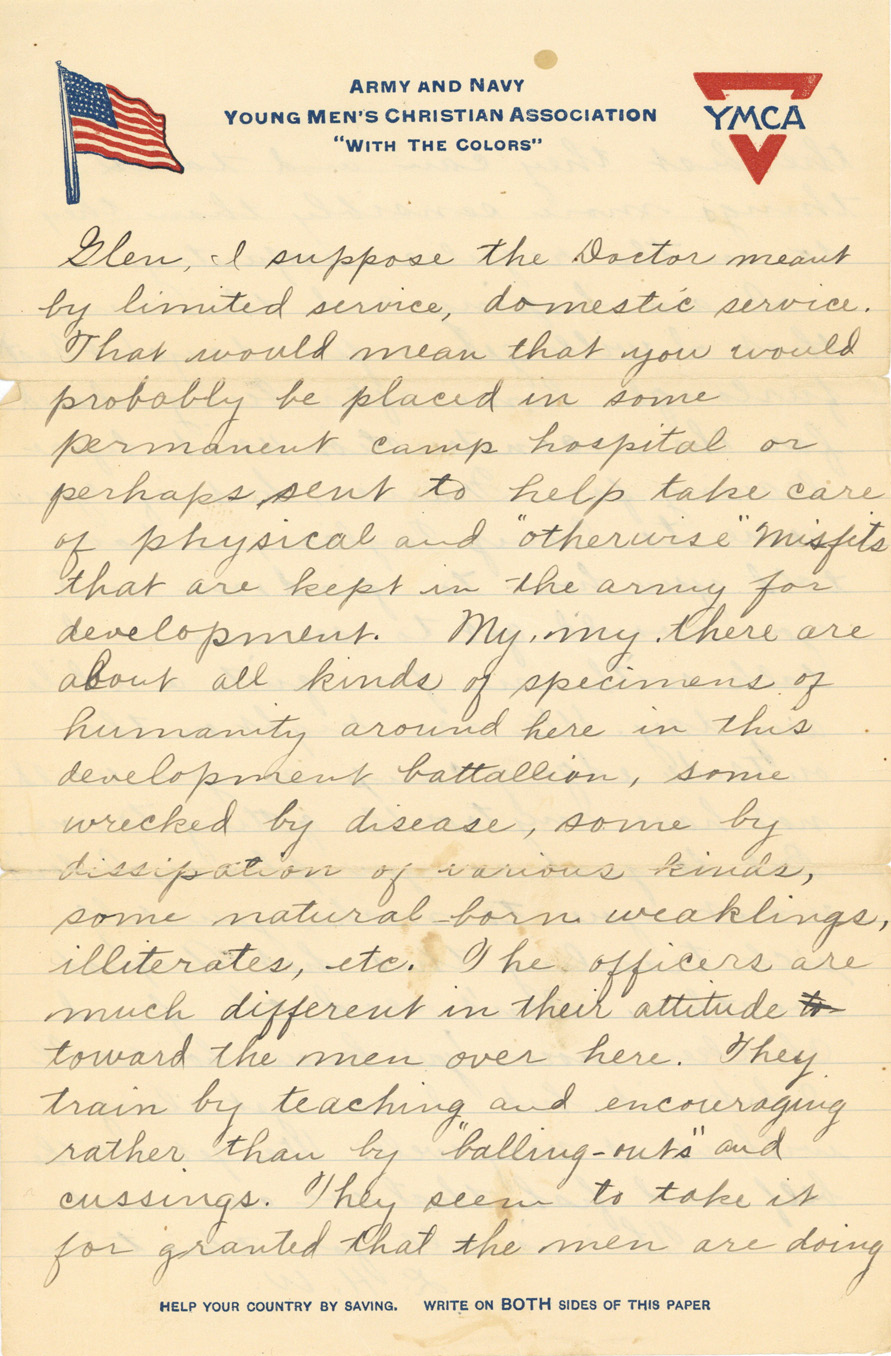 ARMY AND NAVY
YOUNG MEN'S CHRISTIAN ASSOCIATION
"WITH THE COLORS"
YMCA
Glen, I suppose the Doctor meant
by limited service, domestic service.
That would mean that you would
probably be placed in some
permanent camp hospital or
perhaps sent to help take care
of physical and "otherwise" misfits
that are kept in the army for
development. My, my, there are
about all kinds of specimens of
humanity around here in this
development battallion, some
wrecked by disease, some by
dissipation of various kinds,
some natural-born weaklings,
illiterates, etc. The officers are
much different in their attitude to
toward the men over here. They
train by teaching and encouraging
rather than by "balling-outs" and
cussings. They seem to take it
for granted that the men are doing
HELP YOUR COUNTRY BY SAVING. WRITE ON BOTH SIDES OF THIS PAPER